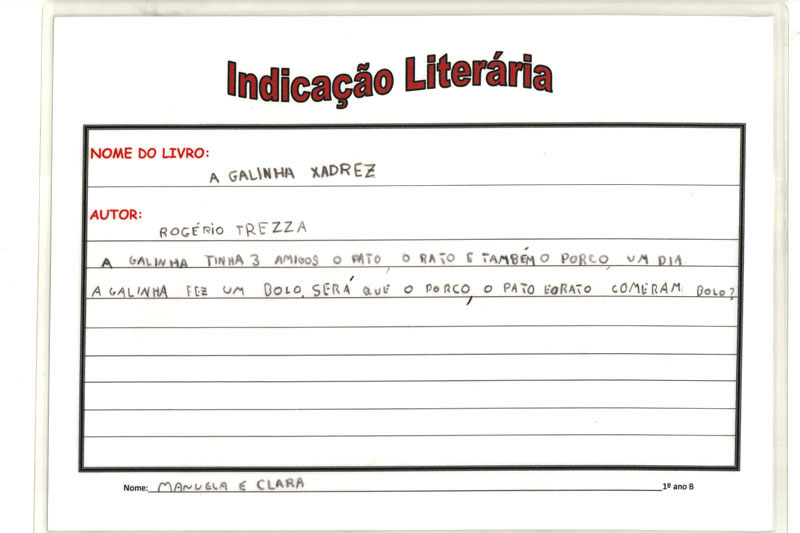 Indicação Literária
NOME DO LIVRO:
A GALINHA XADREZ
AUTOR:
ROGÉRIO TREZZA
A GALINHA TINHA 3 AMIGOS O PATO, O RATO E TAMBÉM O PORCO, UM DIA
A GALINHA FEZ UM BOLO. SERÁ QUE O PORCO, O PATO EORATO COMERAM BOLO?
Nome: MANUELA E CLARA 1º ano B